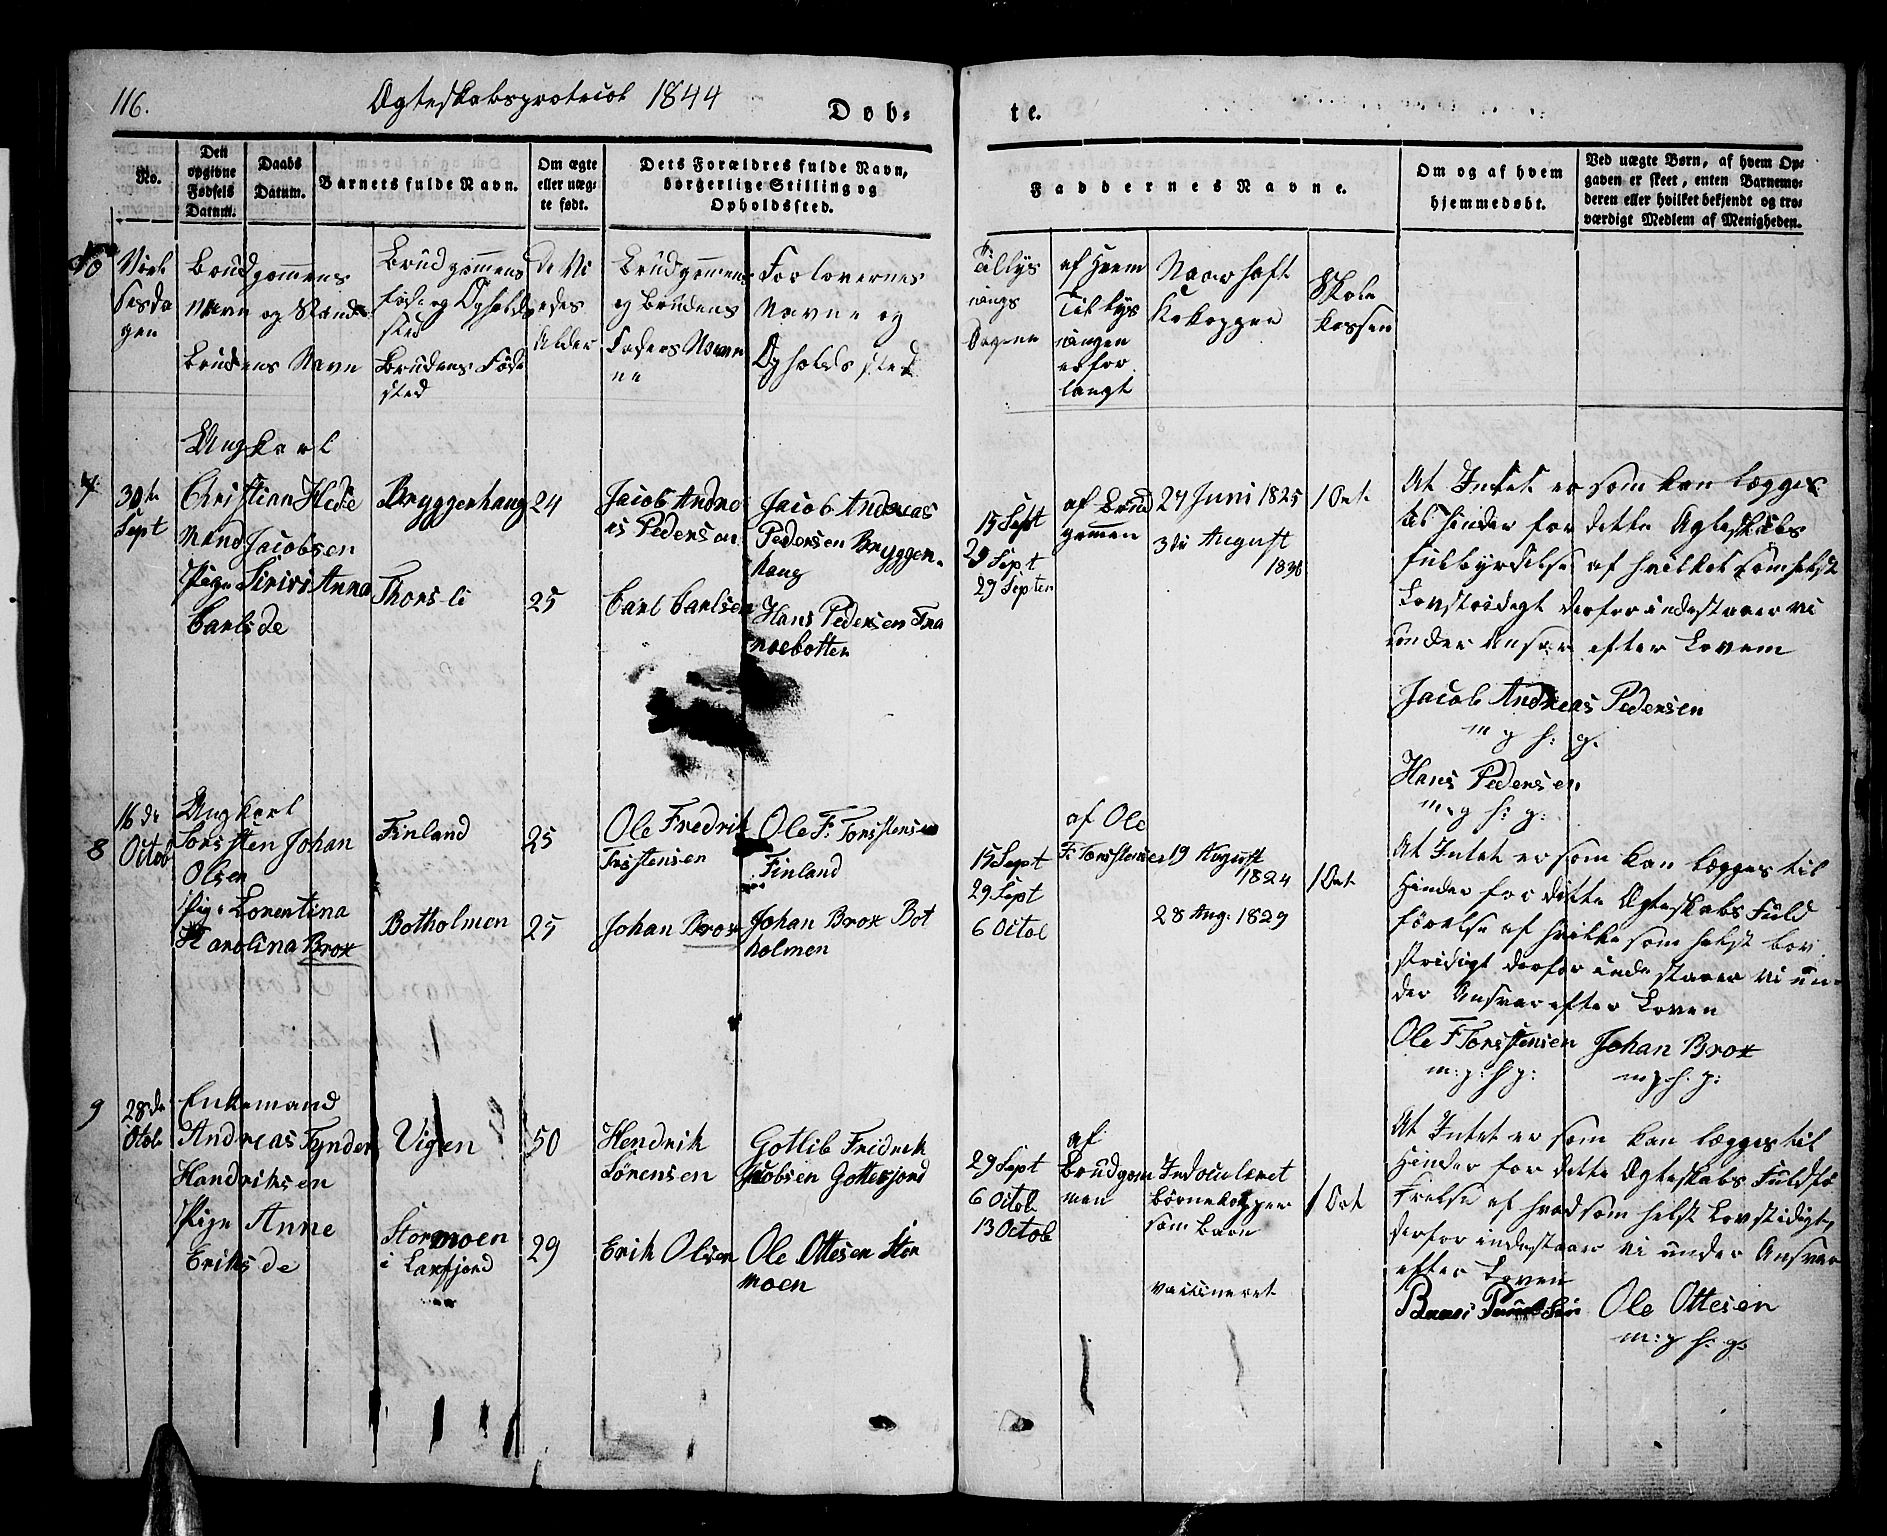 116.
Ægteskabsprotocol 1844
Døb-
te.
No.
Den opgivne Fødsels Datum.
Daabs Datum.
Barnets fulde Navn.
Om ægte eller uægte født.
Dets Forældres fulde Navn, borgerlige Stilling og Opholdssted.
Faddernes Navne.
Om og af hvem hjemmedøbt.
Ved uægte Børn, af hvem Opgaven er skeet, enten Barnemoderen eller hvilket bekjendt og troværdigt Medlem af Menigheden.
No
Viel
sesda
gen
Brudgommens
Navn og Stand
Brudens Navn
Brudgommens
Føde og Opholds
sted
Brudens Føde
sted
De Vi
edes
Alder
Brudgommens
og Brudens
Faders Navn
ne
Forlovernes
Navne og
Opholdssted
Tillys
nings
Dagene
af Hvem
Tillys
ningen
er for
langt
Naar haft
Kokopper
Skole
kassen
7
30te
Sept
Ungkarl
Christian Hede
Mand Jacobsen
Pige Sirivi Anna
Carlsde
Bryggerhaug
Thorsli
24
25
Jacob Andre
as Pedersen
Carl Carlsen
Jacob Andreas
Pedersen Bryggen-
haug
Hans Pedersen Fra
noebotten
15 Sept
29 Sept
29 Septen
af Brud
gommen
27 Juni 1825
3die August
1836
1 Ort
At Intet er som kan lægges
til Hinder for dette Ægteskabs
Fulbyrdelse af hvilket somhelst
Lovstridigt derfor indestaaer vi
under Ansvar efter Loven
Jacob Andreas Pedersen
m p h: g.
Hans Pedersen
m:p h: g:
8
16de
Octob
Ungkarl
Torsten Johan
Olsen
Pige Lorentina
Karolina Brox
Finland
Botholmen
25
25
Ole Fredrik
Torstensen
Johan Brox
Ole F: Torstensen
Finland
Johan Brox Bot
holmen
15 Sept
29 Sept
6 Octob
af Ole
F: Torstensen
19 August
1824
28 Aug: 1829
1 Ort
At Intet er som kan lægges til
Hinder for dette Ægteskabs Fuld
førelse af hvilke som helst lov
stridigt derfor indestaaer vi un-
der Ansvar efter Loven
Ole F Torstensen Johan Brox
m:p: h g: m p. h. g:
9
28de
Octob
Enkemand
Andreas Fynder
Handriksen
Pige Anne
Eriksde
Vigen
Stormoen
i Laxfjord
50
29
Hendrik
Sørensen
Erik Olsen
Gotlib Fridrik
Jacobsen Gottesjord
Ole Ottesen Stor
moen
29 Sept
6 Octob
13 Octob
af
Brudgom
men
Indoculeret
Børnekopper
som Barn
vaccineret
1 Ort
At Intet er som kan lægges til
Hinder for dette Ægteskabs Fuldfø
relse af hvad som helst Lovstridigt
derfor indestaaer vi under Ansvar
efter Loven
Ole Ottesen
m:p h: g: